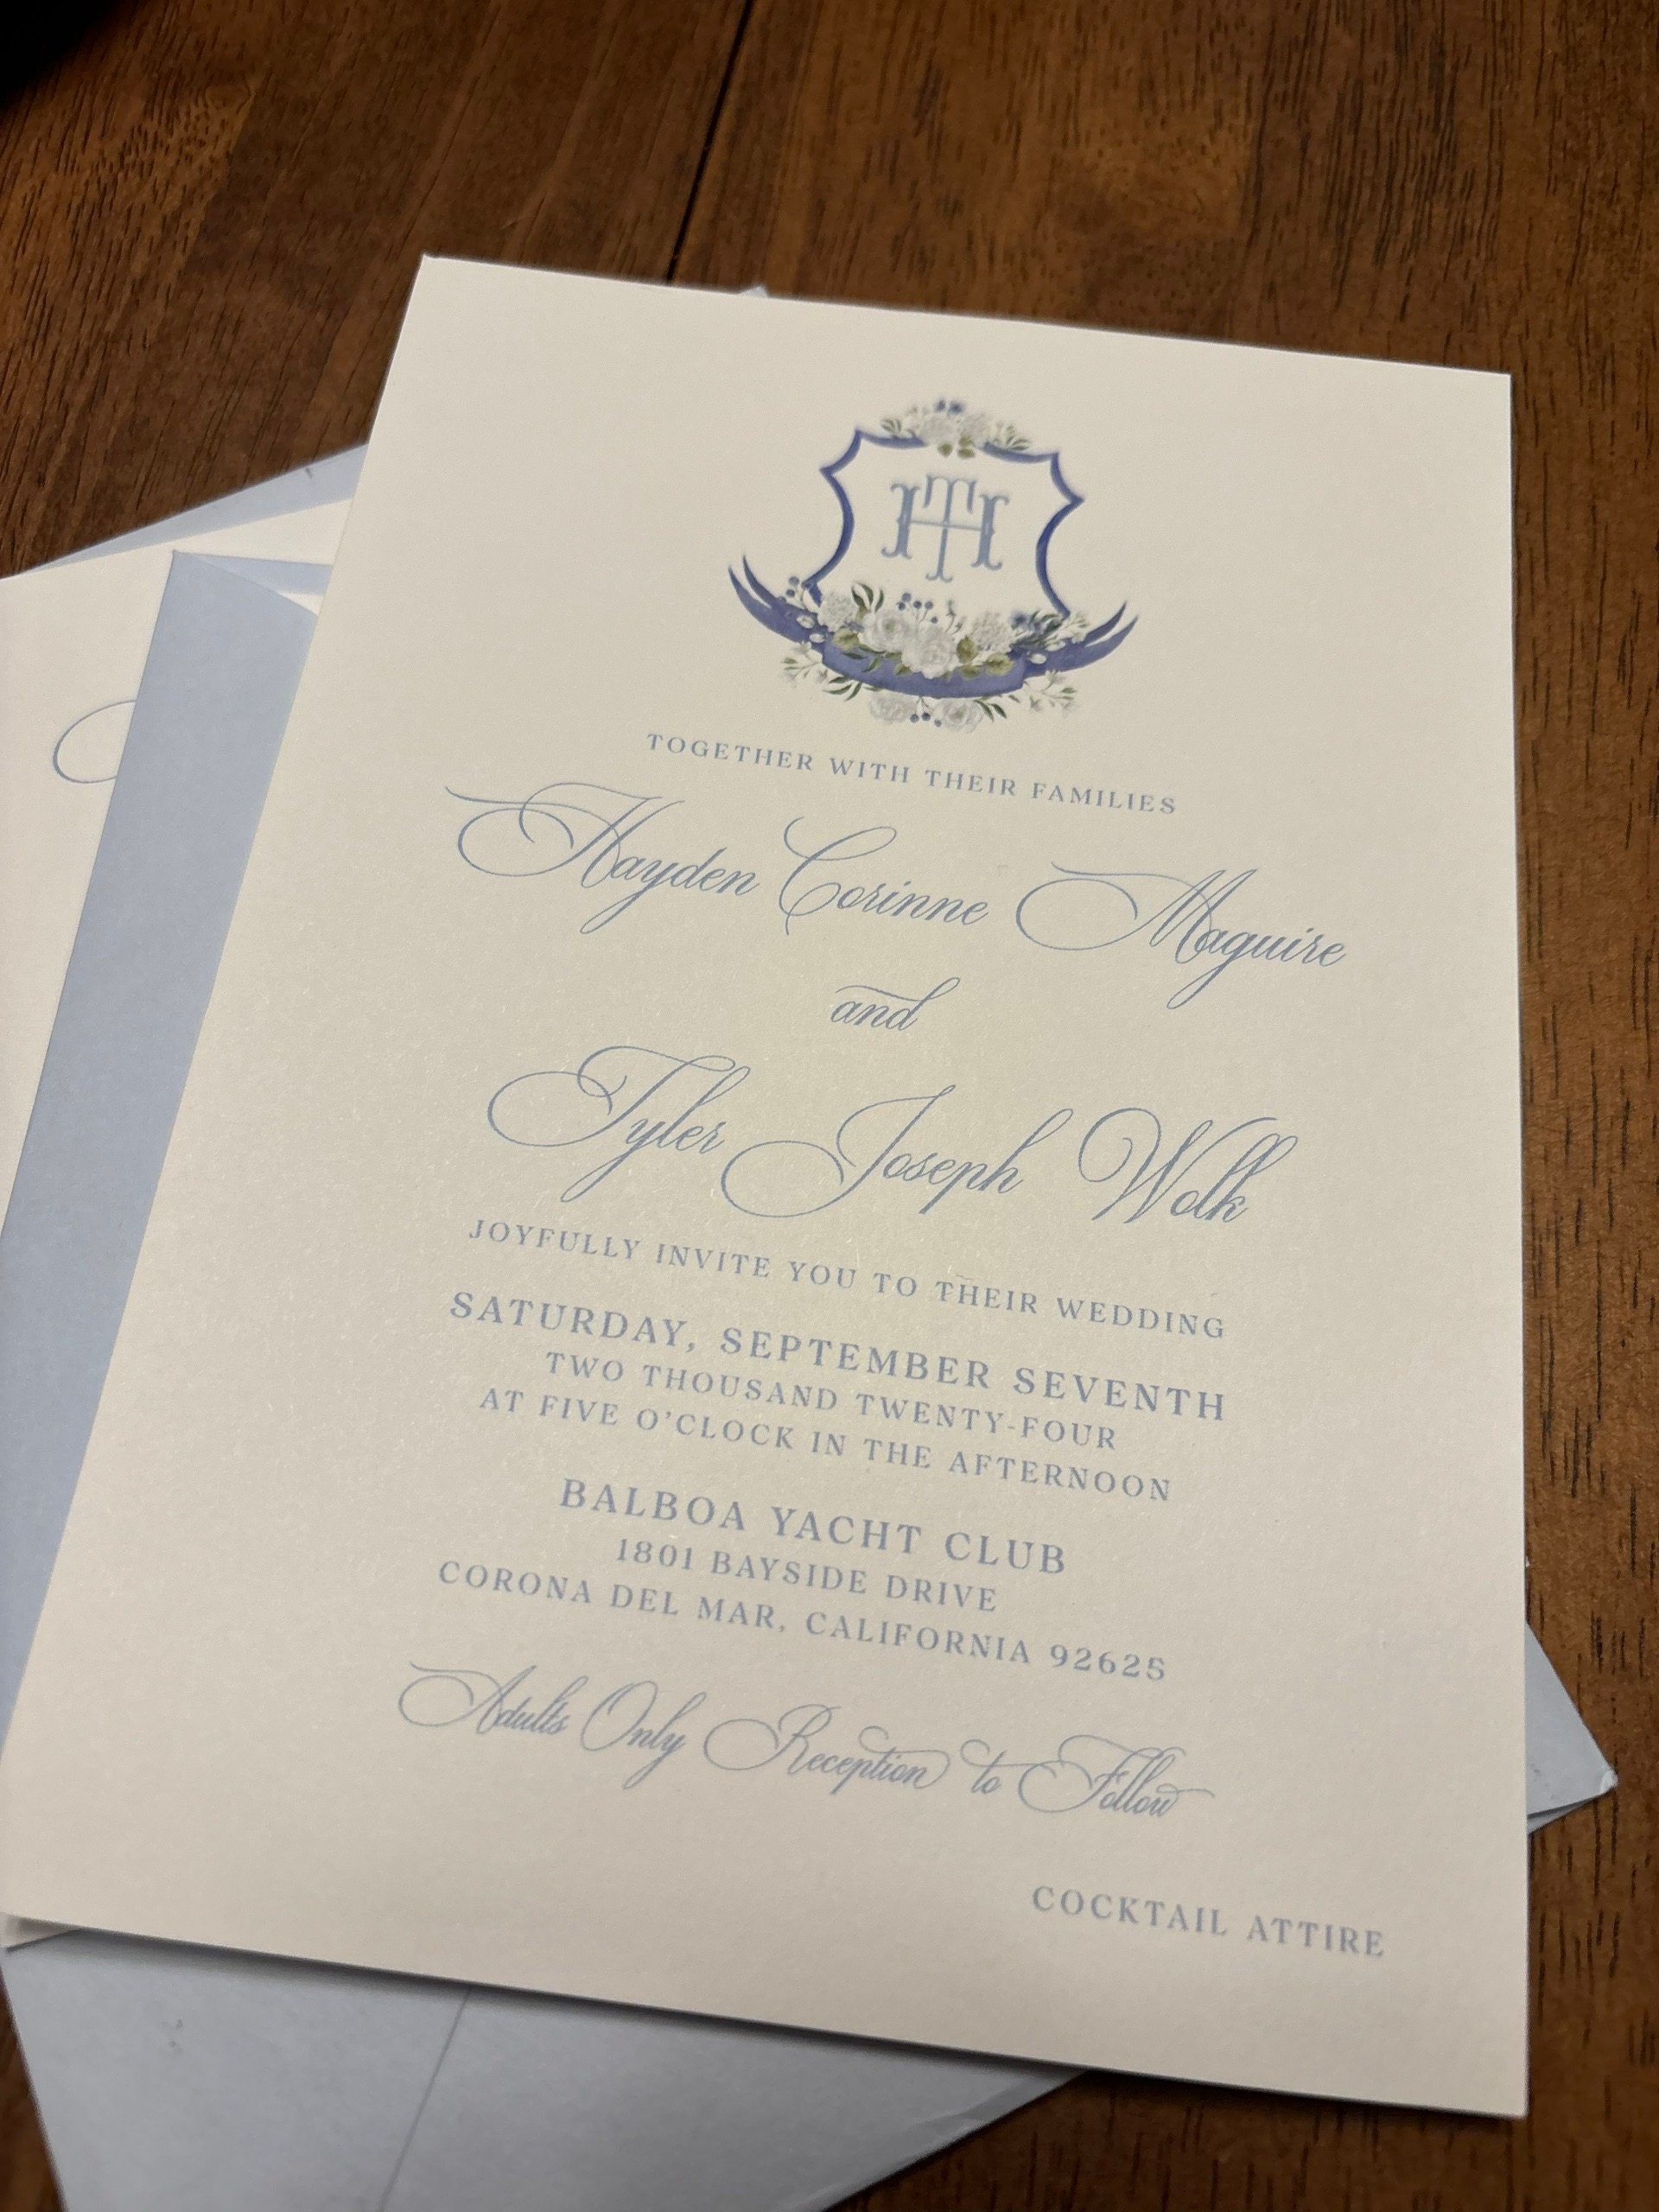 HT
TOGETHER WITH THEIR FAMILIES
Hayden Corinne Maguire
and
Tyler Joseph Wolk
JOYFULLY INVITE YOU TO THEIR WEDDING
SATURDAY, SEPTEMBER SEVENTH
TWO THOUSAND TWENTY-FOUR
AT FIVE O'CLOCK IN THE AFTERNOON
BALBOA YACHT CLUB
1801 BAYSIDE DRIVE
CORONA DEL MAR, CALIFORNIA 92625
Adults Only Reception to Follow
COCKTAIL ATTIRE